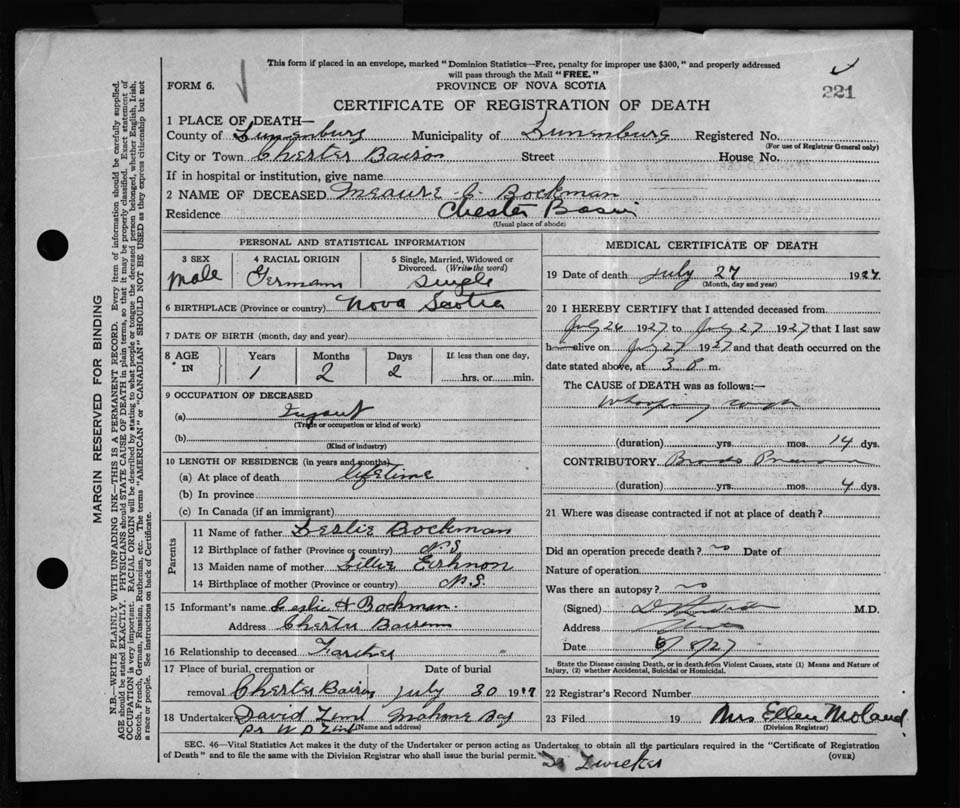 This form if placed in an envelope, marked "Dominion Statistics—Free, penalty for improper use $300," and properly addressed
will pass through the Mail "FREE."
FORM 6.
PROVINCE OF NOVA SCOTIA
221
CERTIFICATE OF REGISTRATION OF DEATH
1 PLACE OF DEATH—
County of Lunenburg Municipality of Lunenburg Registered No.
(For use of Registrar General only)
City or Town Chester Baison Street House No.
If in hospital or institution, give name
2 NAME OF DECEASED C Bockman
Residence Chester Basin
(Usual place of abode)
PERSONAL AND STATISTICAL INFORMATION
3 SEX 4 RACIAL ORIGIN 5 Single, Married, Widowed or
Divorced. (Write the word)
Male German Single
6 BIRTHPLACE (Province or country) Nova Scotia
7 DATE OF BIRTH (month, day and year)
8 AGE IN Years Months Days If less than one day,
1 2 2 hrs. or min.
9 OCCUPATION OF DECEASED
(a) Infant
(Trade or occupation or kind of work)
(b)
(Kind of industry)
10 LENGTH OF RESIDENCE (in years and months)
(a) At place of death lifetime
(b) In province
(c) In Canada (if an immigrant)
Parents
11 Name of father Leslie Bockman
12 Birthplace of father (Province or country) N.S.
13 Maiden name of mother Lillie
14 Birthplace of mother (Province or country) N.S.
15 Informant's name Leslie H Bockman
Address Chester
16 Relationship to deceased Farther
17 Place of burial, cremation or Date of burial
removal Chester July 30 19
18 Undertaker David Mahone Bay
(Name and address)
MEDICAL CERTIFICATE OF DEATH
19 Date of death July 27 1927.
(Month, day and year)
20 I HEREBY CERTIFY that I attended deceased from
July 26 1927 to July 27 1927 that I last saw
h alive on July 27 1927 and that death occurred on
date stated above, at 3 m.
The CAUSE of DEATH was as follows:—
Whooping cough
(duration) yrs. mos. 14 dys.
CONTRIBUTORY
(duration) yrs. mos. 4 dys.
21 Where was disease contracted if not at place of death?
Did an operation precede death? no Date of
Nature of operation
Was there an autopsy? no
(Signed) M.D.
Address
Date
State the Disease causing Death, or in death from Violent Causes, state (1) Means and Nature of
Injury, (2) whether Accidental, Suicidal or Homicidal.
22 Registrar's Record Number
23 Filed 19 Mrs Ellen
(Division Registrar)
SEC. 46—Vital Statistics Act makes it the duty of the Undertaker or person acting as Undertaker to obtain all the particulars required in the "Certificate of Registration
of Death" and to file the same with the Division Registrar who shall issue the burial permit. (OVER)
Zwicker
MARGIN RESERVED FOR BINDING
N.B.—WRITE PLAINLY WITH UNFADING INK—THIS IS A PERMANENT RECORD. Every item of information should be carefully supplied.
AGE should be stated EXACTLY. PHYSICIANS should STATE CAUSE OF DEATH in plain terms, so that it may be properly classified. Exact statement of
OCCUPATION is very important. RACIAL ORIGIN will be described by stating to what people or tongue the deceased person belonged, whether English, Irish,
Scotch, French, German, Russian, Ruthenian, etc. The terms "AMERICAN" or "CANADIAN" SHOULD NOT BE USED as they express citizenship but not
a race or people. See instructions on back of Certificate.